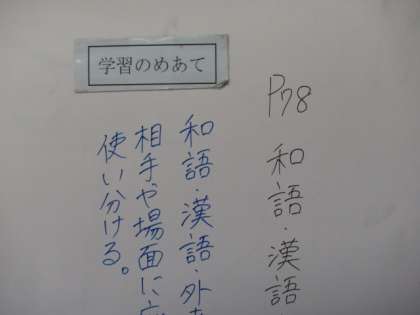 学習のめあて
P78 和語・漢語
和語・漢語・外
相手や場面に
使い分ける。